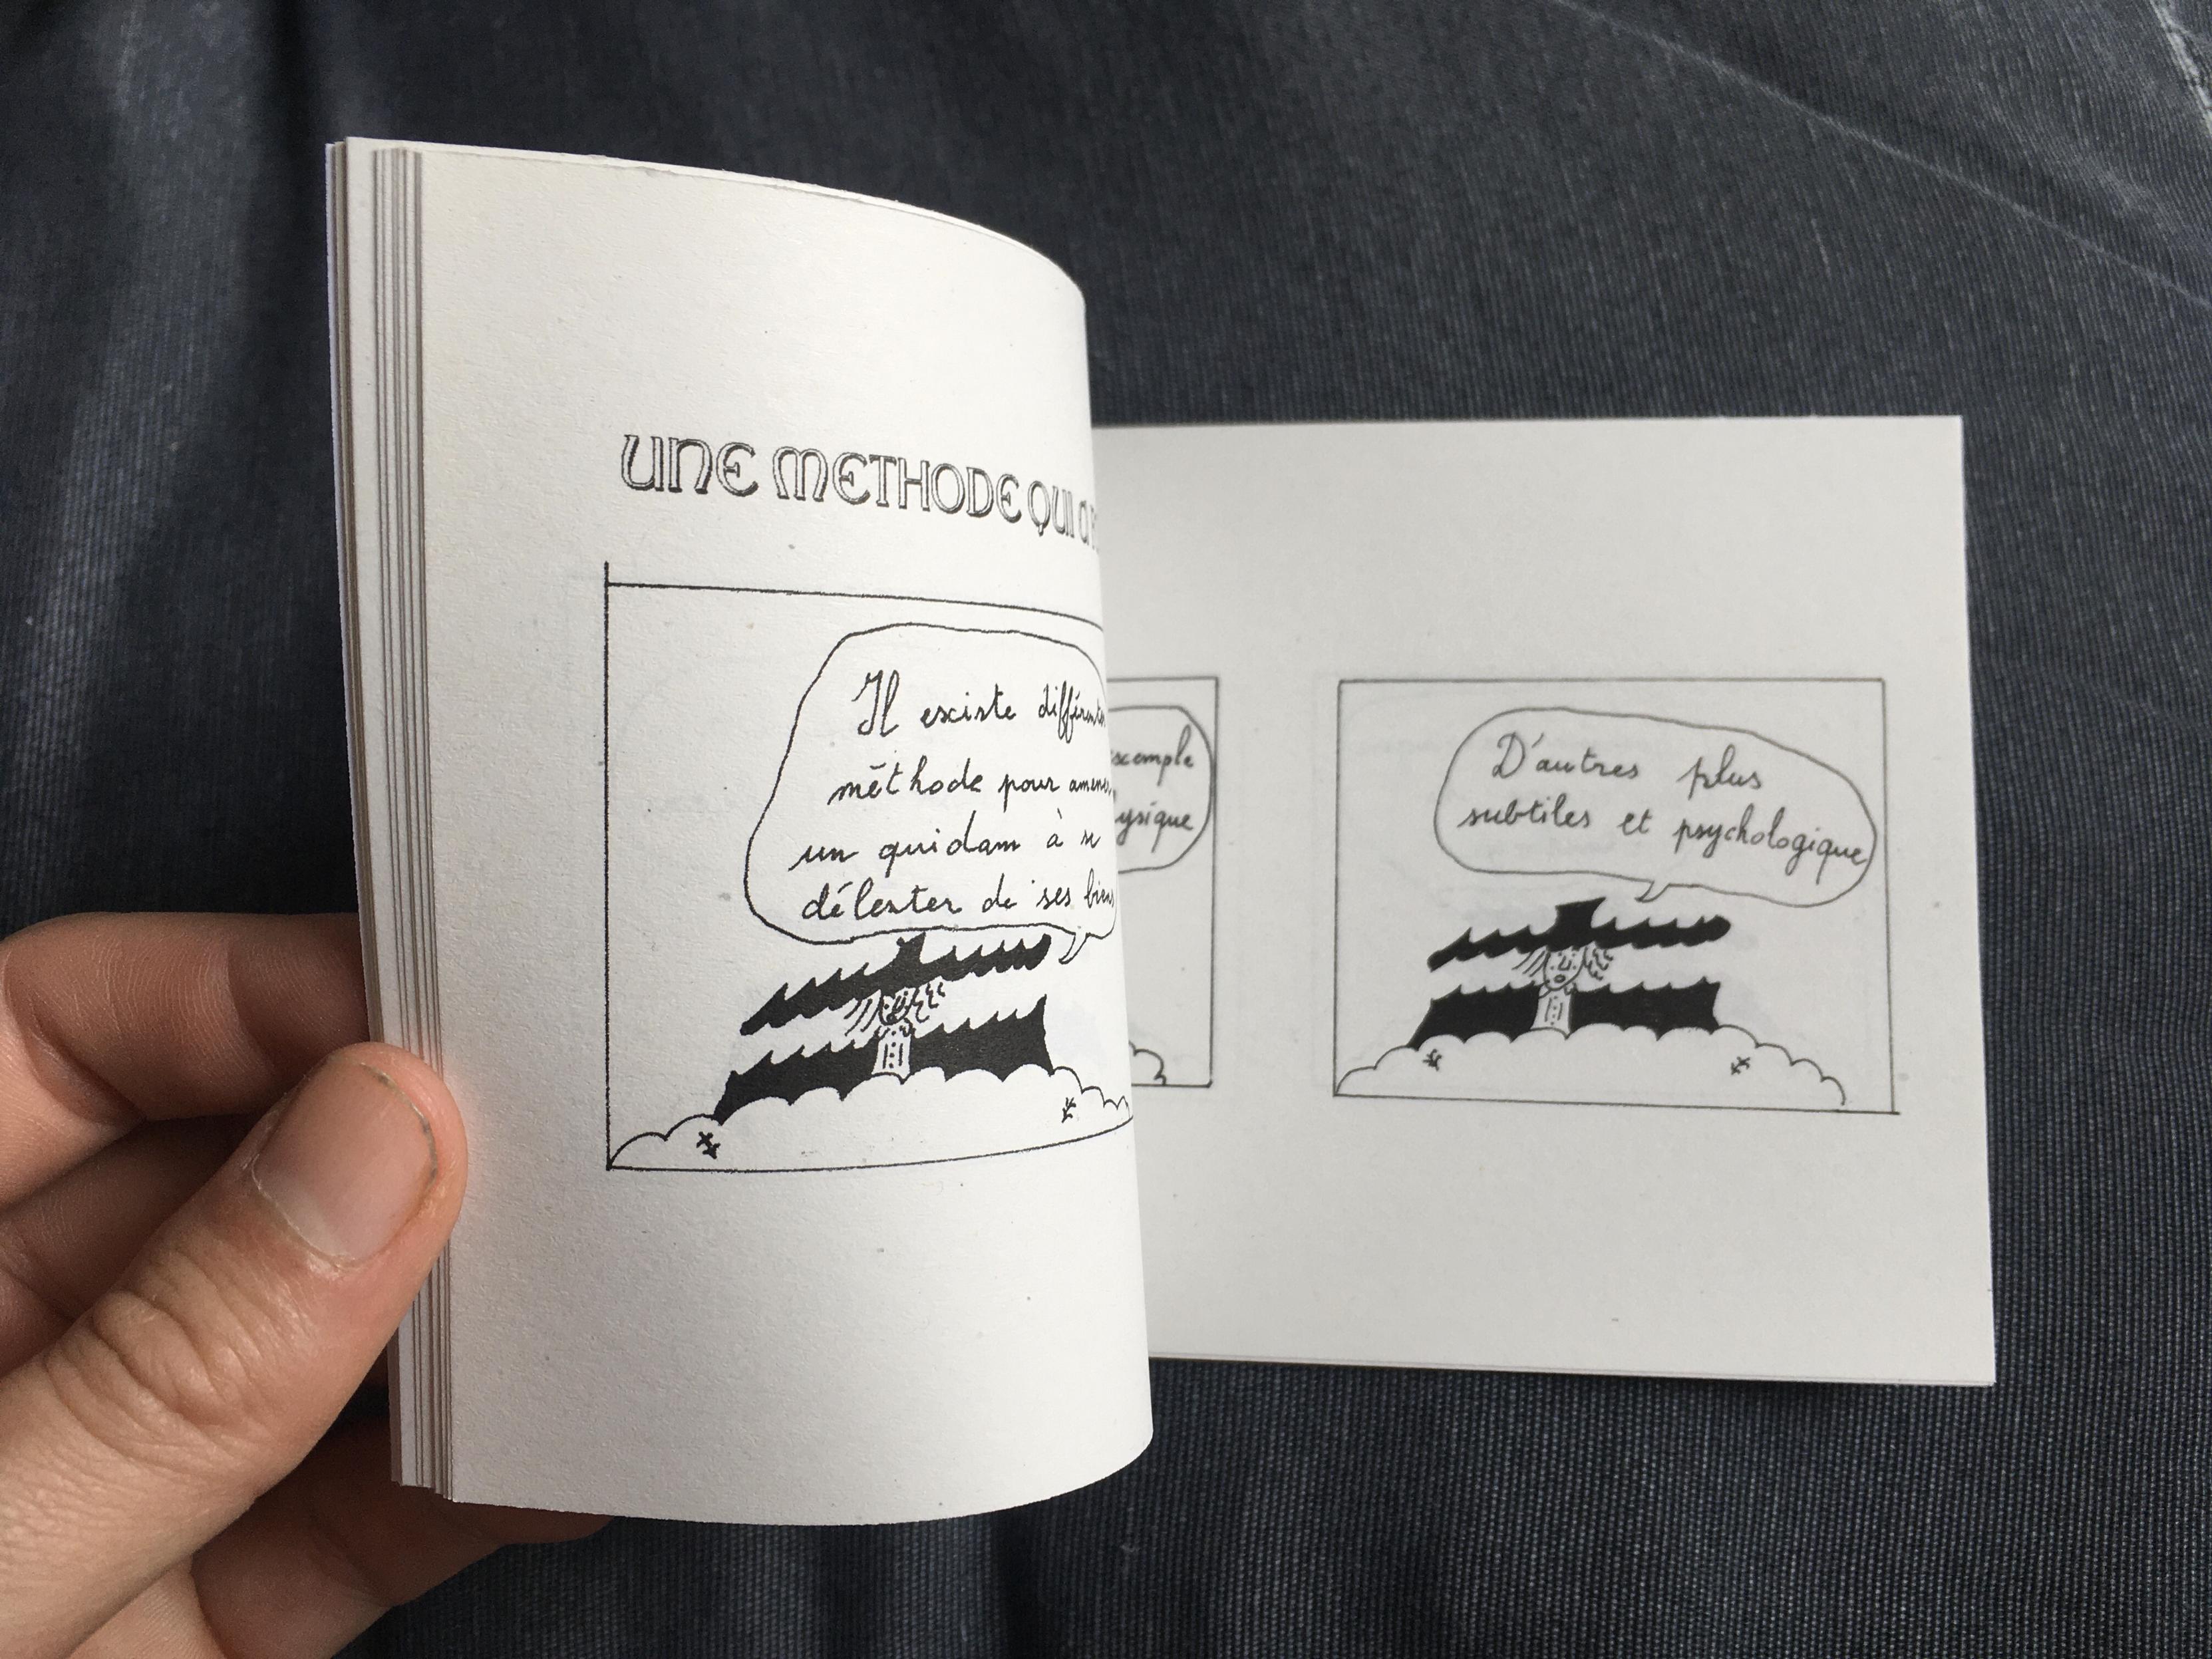 UNE METHODE QUI A
Il existe différentes
méthode pour amener
un quidam à se
délester de ses biens
exemple
ysique
D'autres plus
subtiles et psychologique